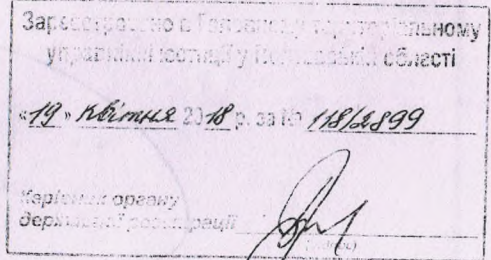 Зареєстровано в Головному територіальному
управлінні юстиції у області
«19» квітня 2018 р. за № 118/2899
Керівник органу
державної реєстрації
(підпис)